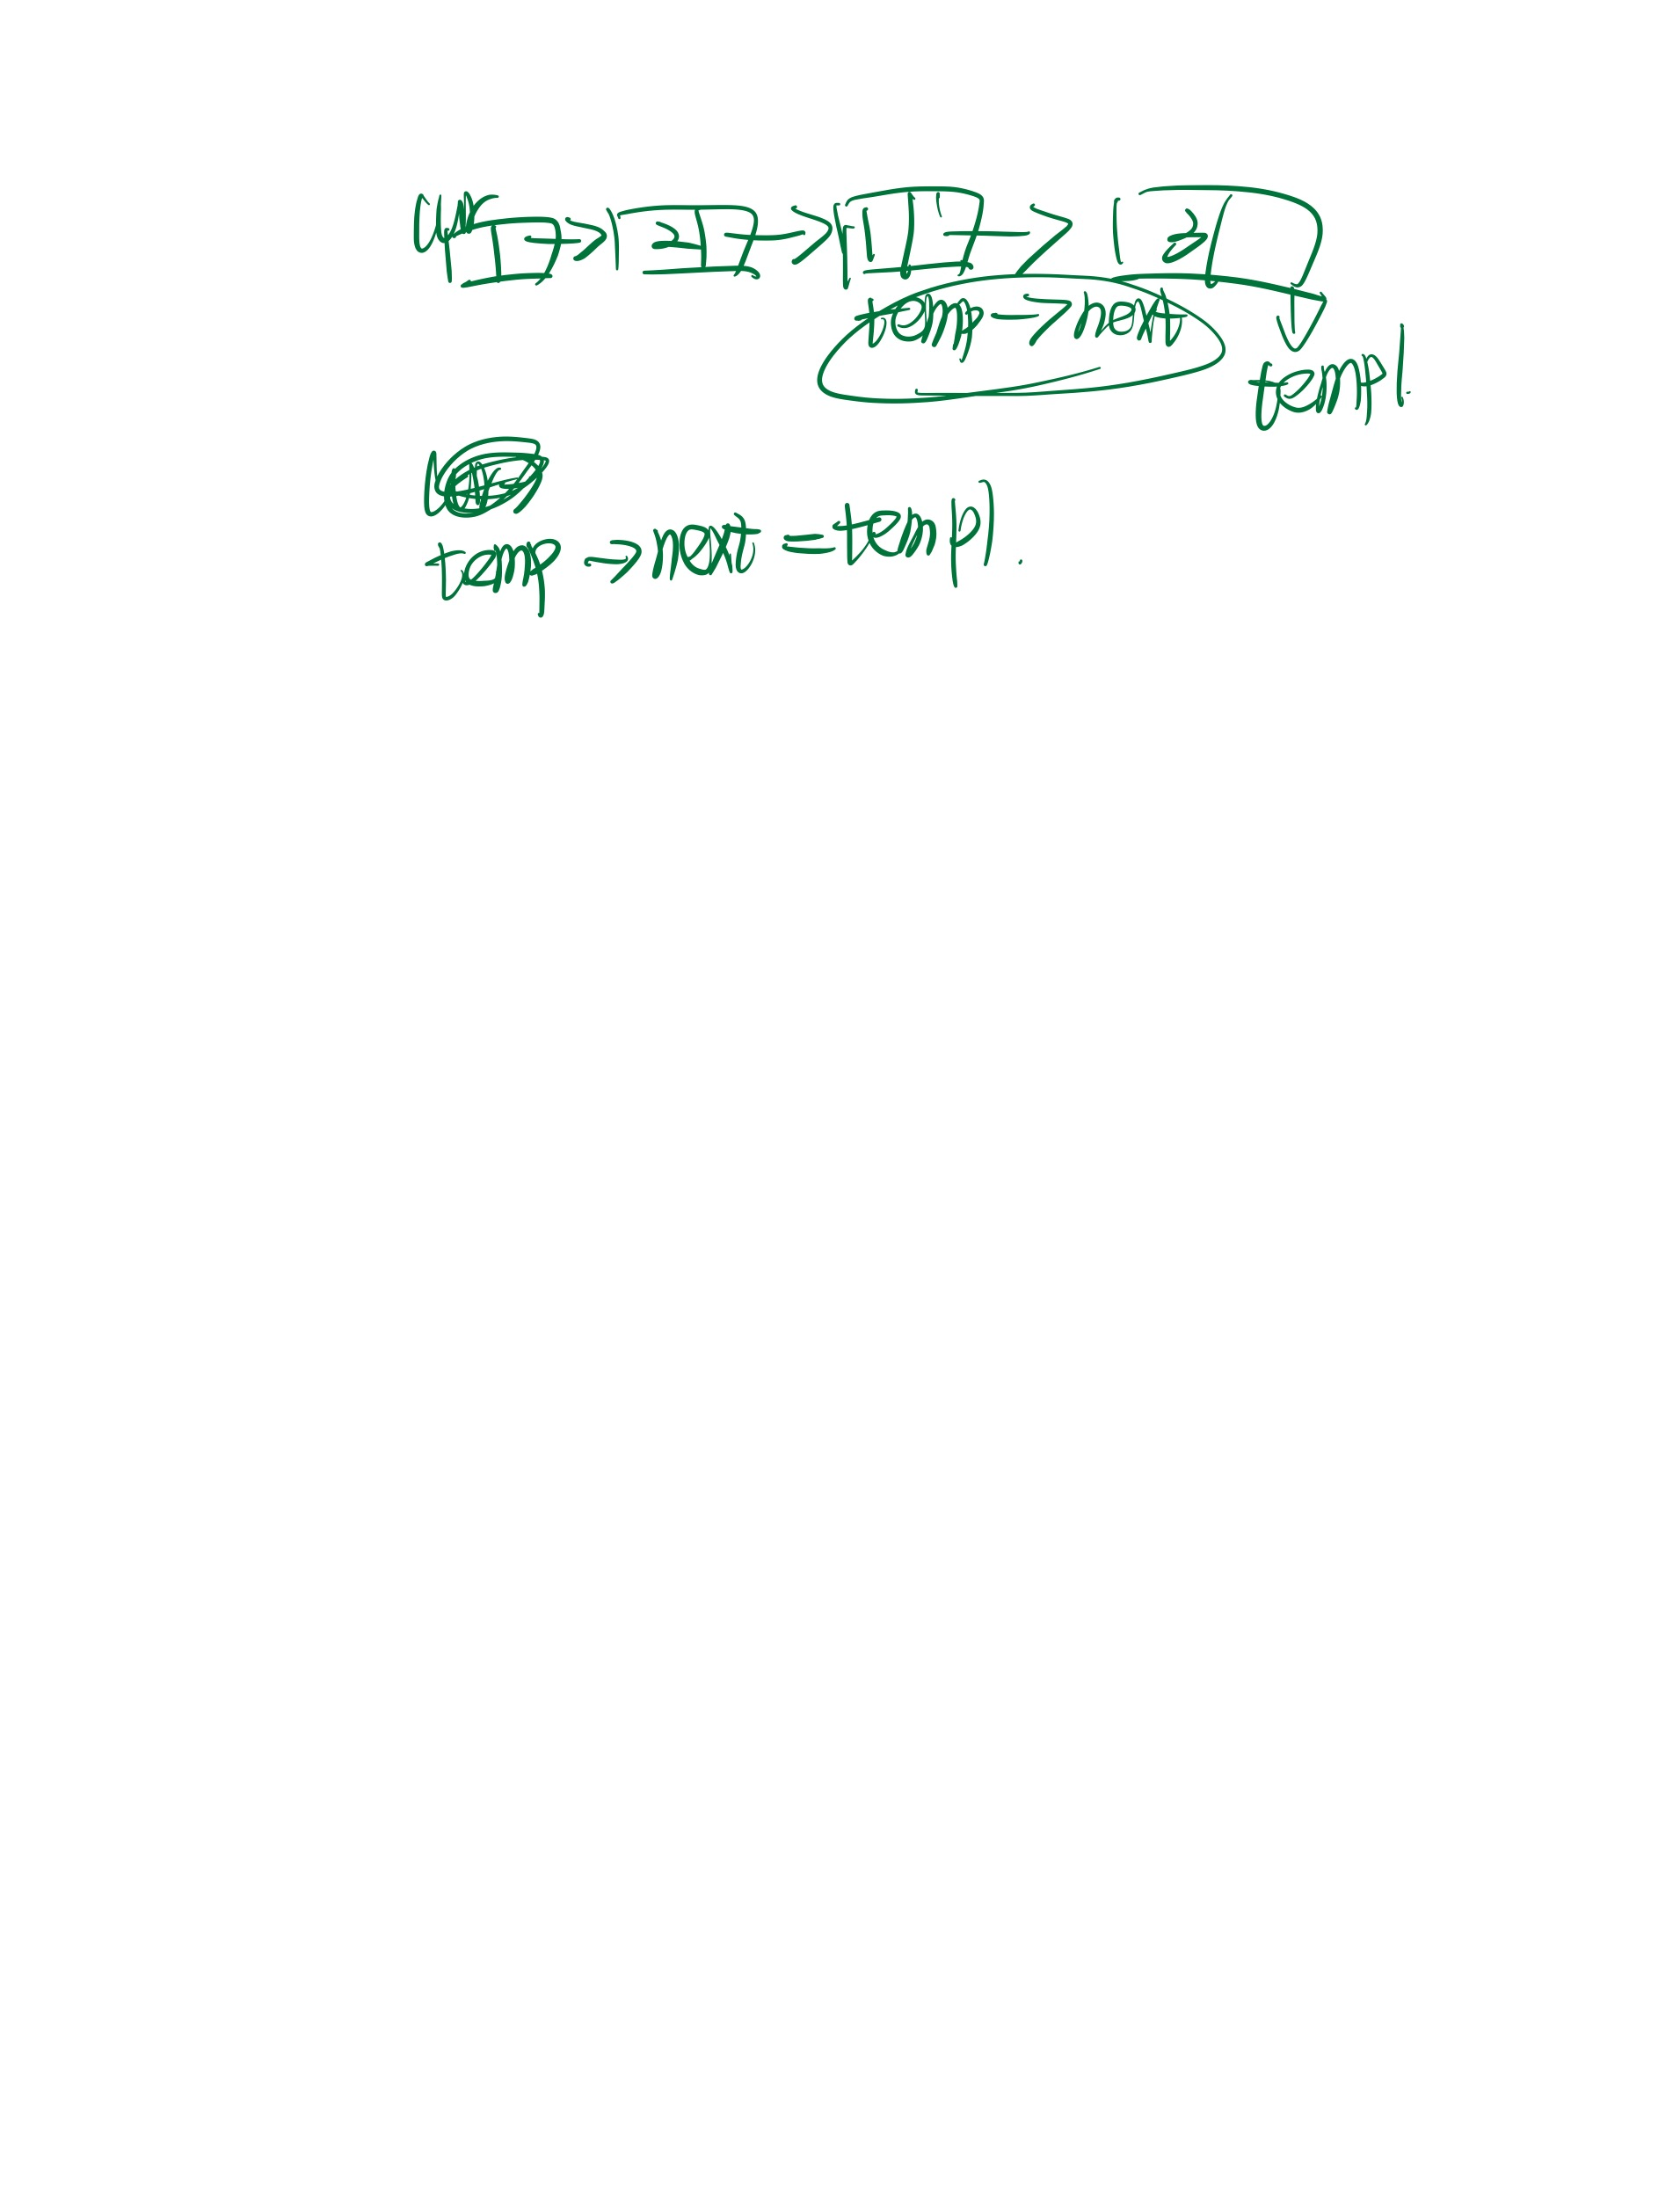 2 1 2
temp->next
temp1.
temp->next = temp1.